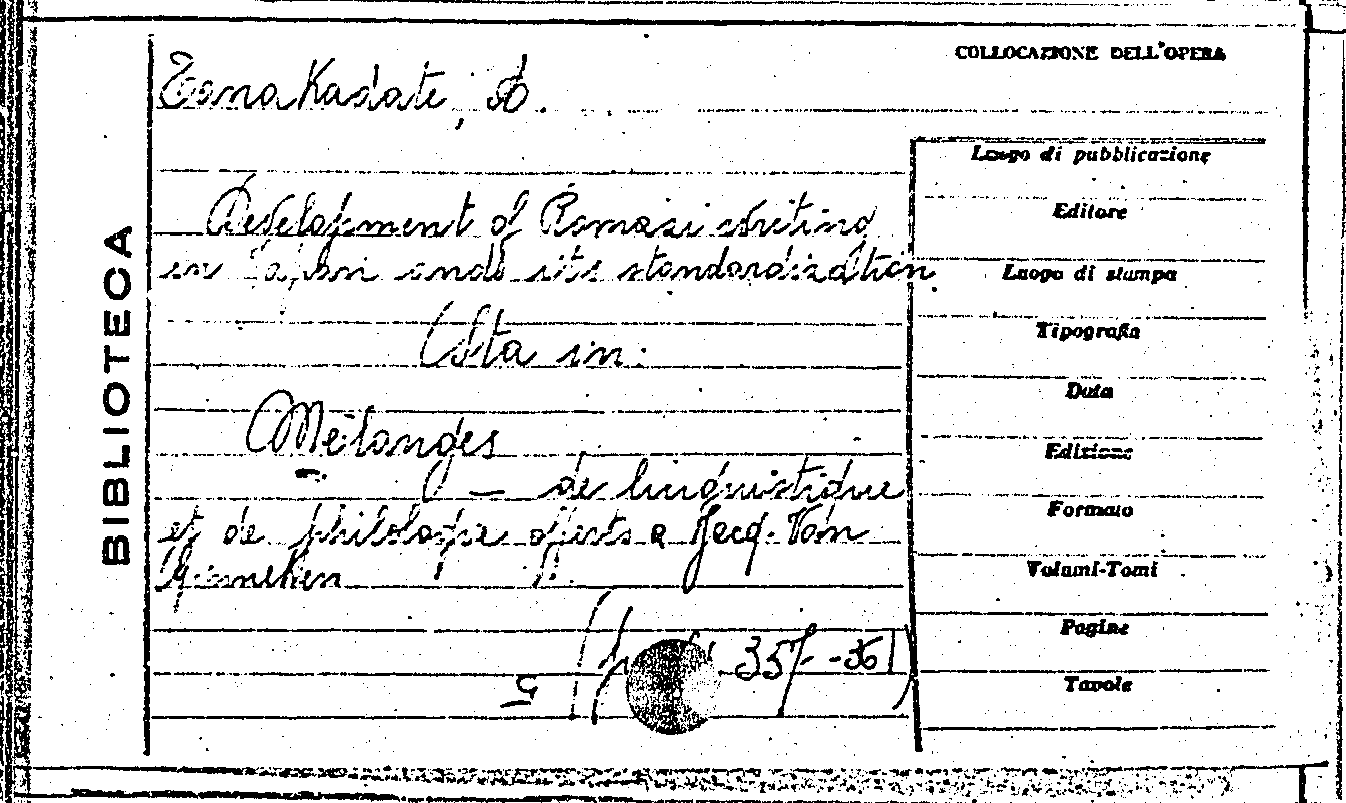 COLLOCAZIONE DELL'OPERA
Tanakadate, A.
Development of Romazi writing
in Japan and its standardization.
Sta in:
Mélanges
de linguistique
et de philologie offerts a Jacq. Van
Ginneken
357-361)
BIBLIOTECA
Luogo di pubblicazione
Editore
Luogo di stampa
Tipografia
Data
Edizione
Formato
Volumi-Tomi
Pagine
Tavole